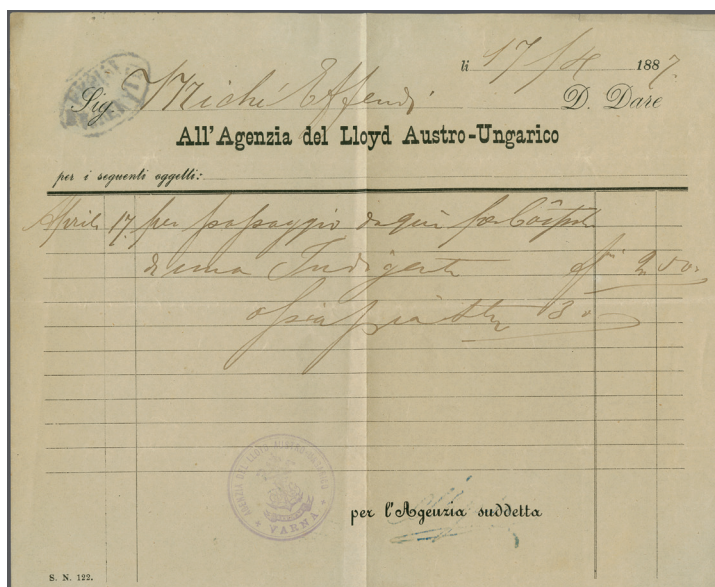 li 17/4 1887.
Sig. Miché Effendi D. Dare
All'Agenzia del Lloyd Austro-Ungarico
per i seguenti oggetti:
Aprile 17. per passaggio da qui per Cospoli
di una Indigente f. 2.50.
ossia 
AGENZIA DEL LLOYD AUSTRO-UNGARICO
VARNA
per l'Agenzia suddetta
S. N. 122.